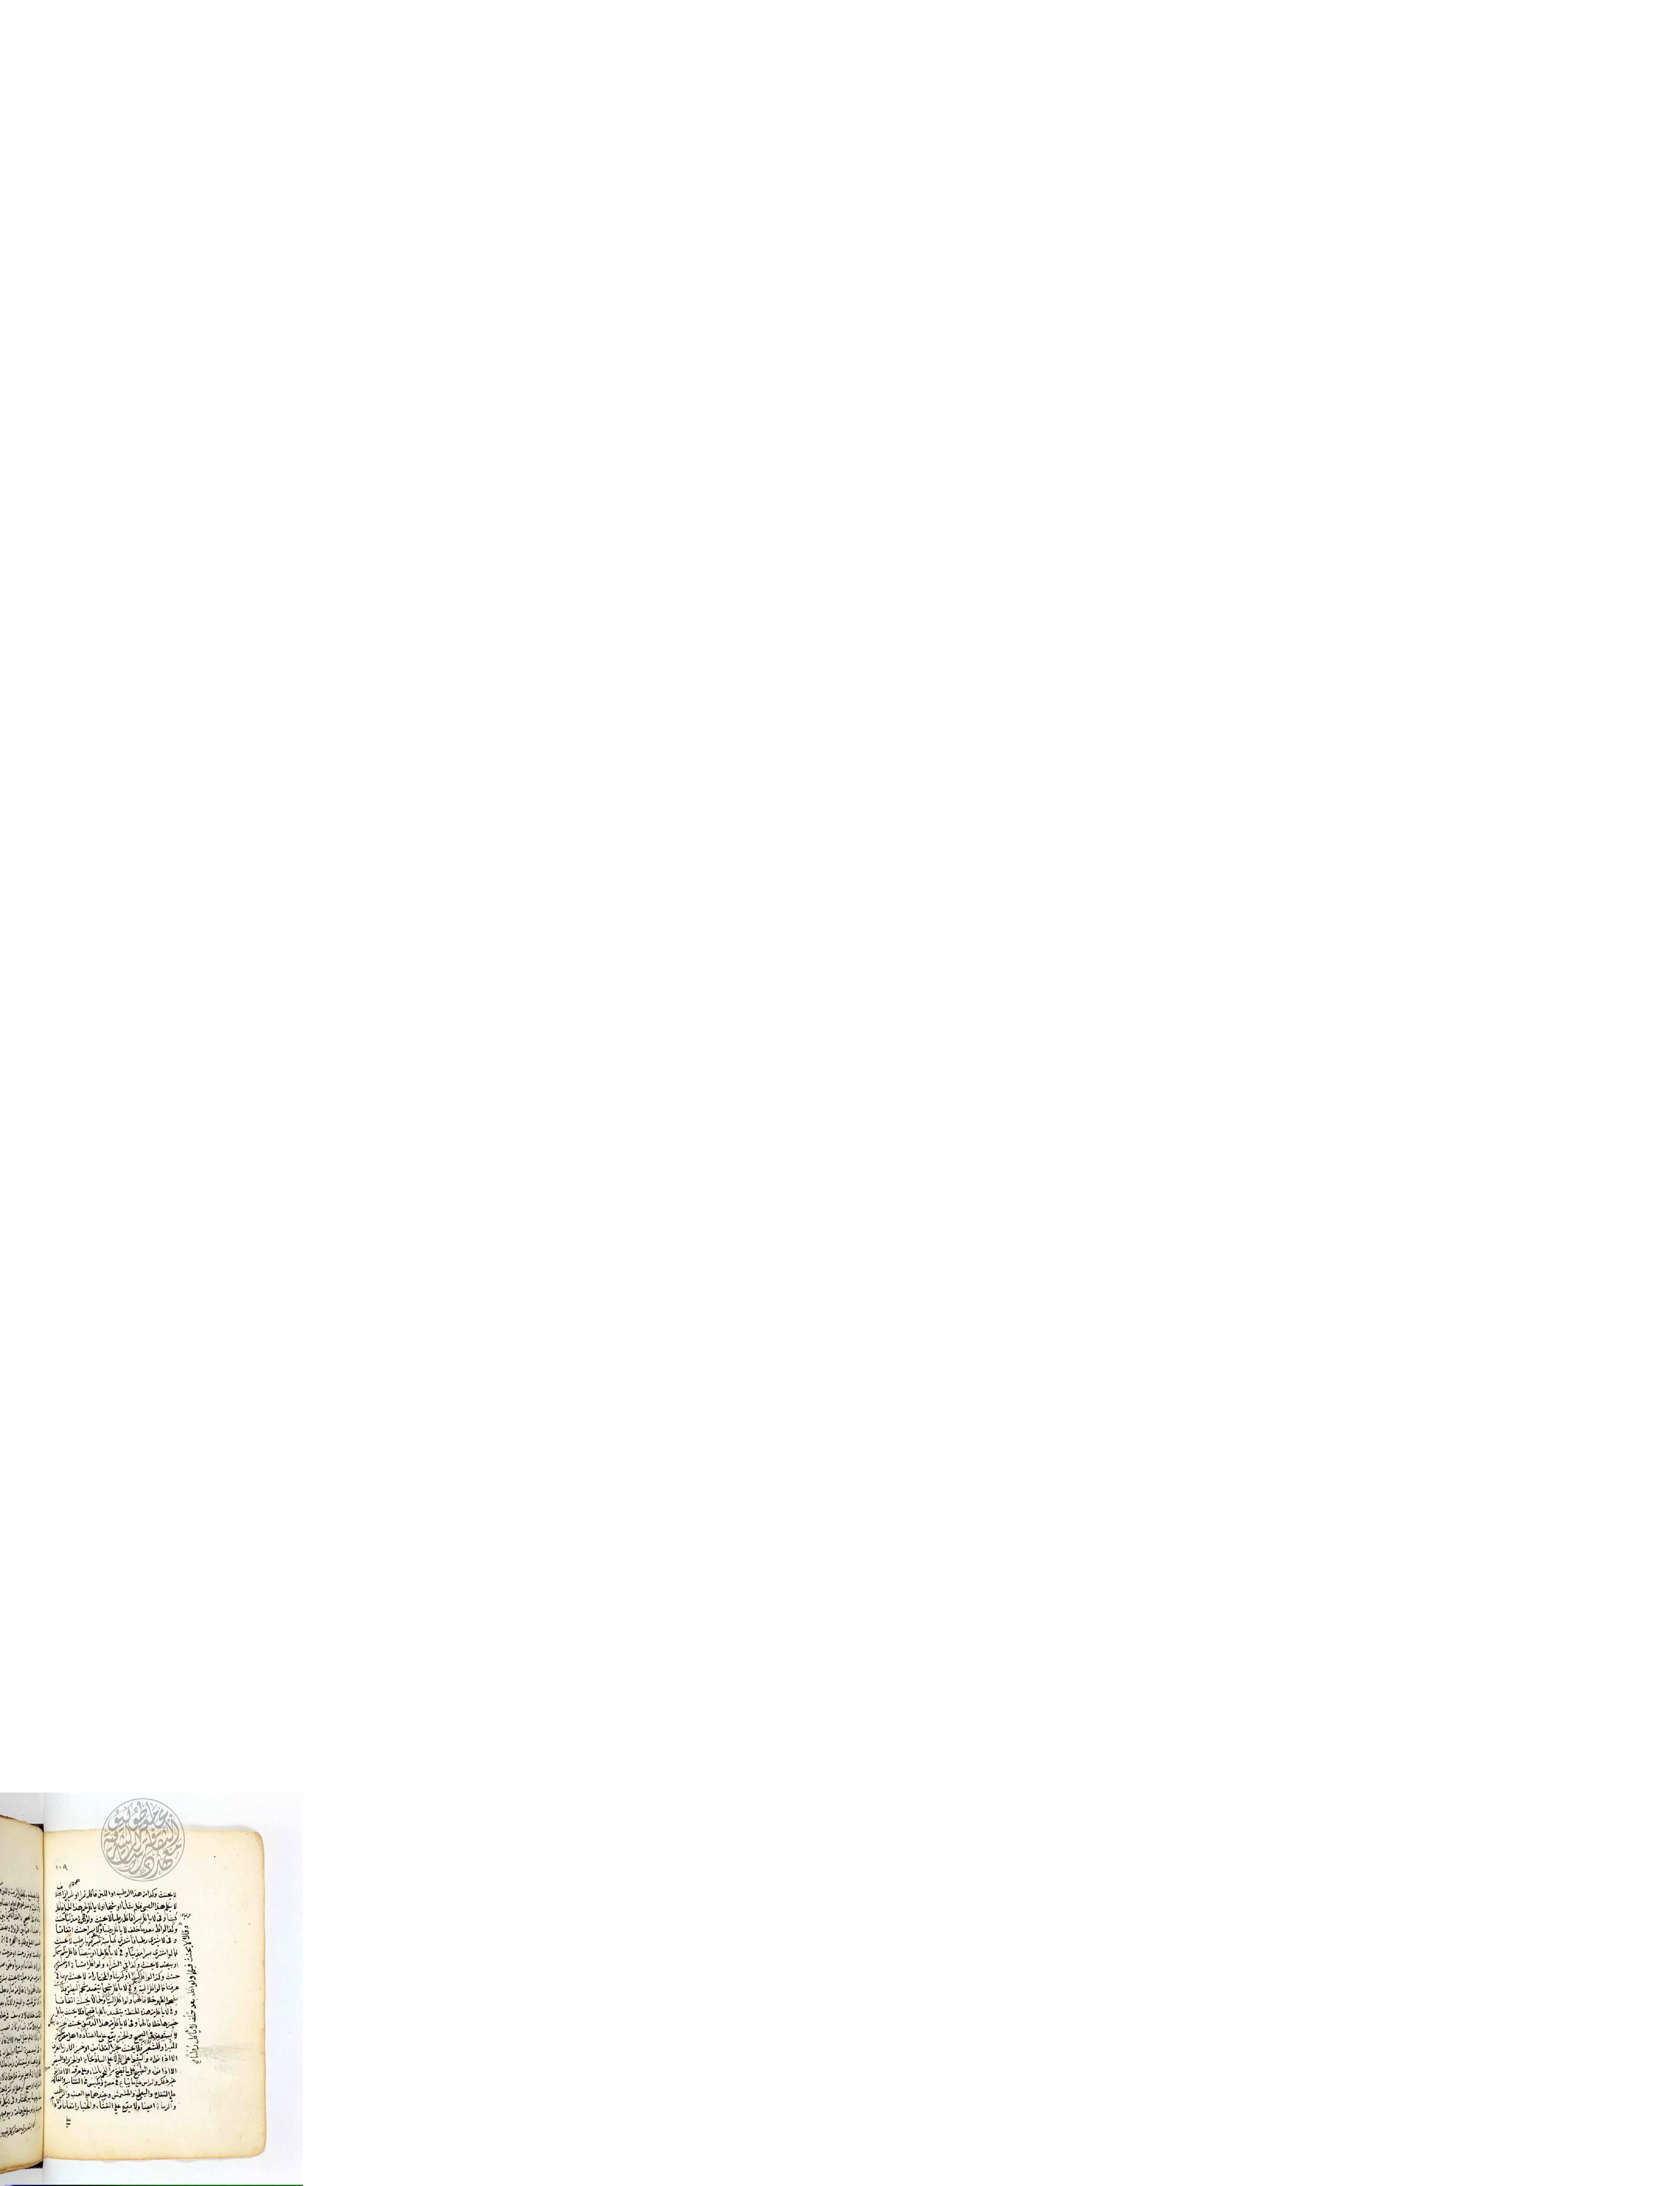 ١٠٩
لا يحنث وكذا من هذا الرطب او اللبن فاكله تمرا او شيرازا
لا يكلم هذا الصبى فكلم شابا او شيخا او لا ياكل لحم هذا الحمل فاكل
كبشا وفى لا ياكل بسرا فاكل رطبا لا يحنث ولو اكل مذنبا حنث
وكذا لو اكله بعد ما حلف لا ياكل رطبا ولا بسرا حنث اتفاقا
و فى لا يشترى رطبا فاشترى كباسة بسر فيها رطب لا يحنث
كما لو اشترى بسرا مذنبا و فى لا ياكل لحما او بيضا فاكل لحم سمك
او بيضه لا يحنث وكذا فى الشراء ولو اكل لحم انسان او خنزير
حنث وكذا لو اكل كبدا او كرشا والمختار انه لا يحنث بهما فى
عرفنا كما لو اكل الية و فى لا ياكل شحما يتقيد بشحم البطن فلا
بشحم الظهر خلافا لهما ولو اكل الية او لحما لا يحنث اتفاقا
و فى لا ياكل من هذه الحنطة يتقيد باكلها قضما فلا يحنث باكل
خبزها خلافا لهما و فى لا ياكل من هذا الدقيق يحنث بخبزه
لا بسفه فى الصحيح والخبز يقع على ما اعتاده اهل مصره كخبز
البر او الشعير فلا يحنث بخبز القطائف او خبز الارز بالعراق
الا اذا نواه والشواء على اللحم لا على الباذنجان او الجزر او البيض
الا اذا نواه والطبيخ على ما يطبخ من اللحم بالماء وعلى مرقه الا اذا نوى
غير ذلك والراس على ما يباع فى مصره ويكبس فى التنانير والفاكهة
على التفاح والبطيخ والمشمش وعندهما على العنب والرطب
والرمان ايضا ولا يقع على القثاء والخيار اتفاقا
وقالا لا يحنث فيهما ولو اكله بعد حلفه لا ياكل رطبا